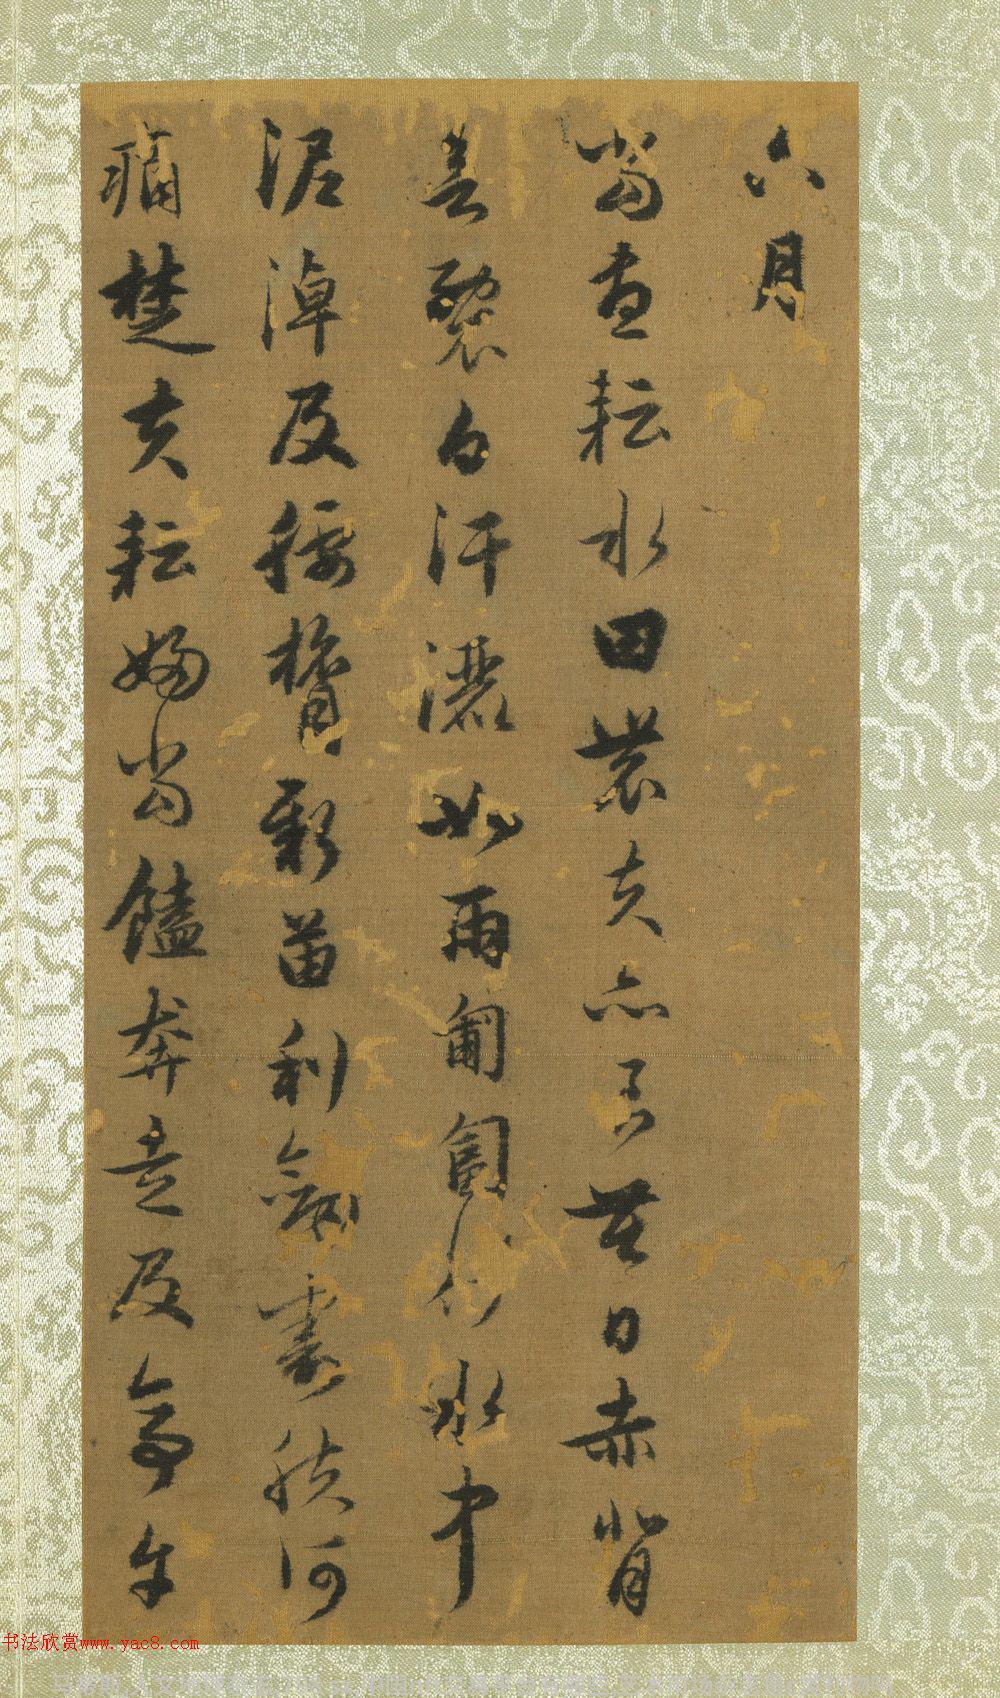 六月
當晝耘水田農夫亦良苦日赤背
若裂白汗灑如雨匍匐行水中
泥淖及腰膂新苗利劍割膚何
痛楚夫耘婦當饁奔走及亭午
书法欣赏www.yac8.com